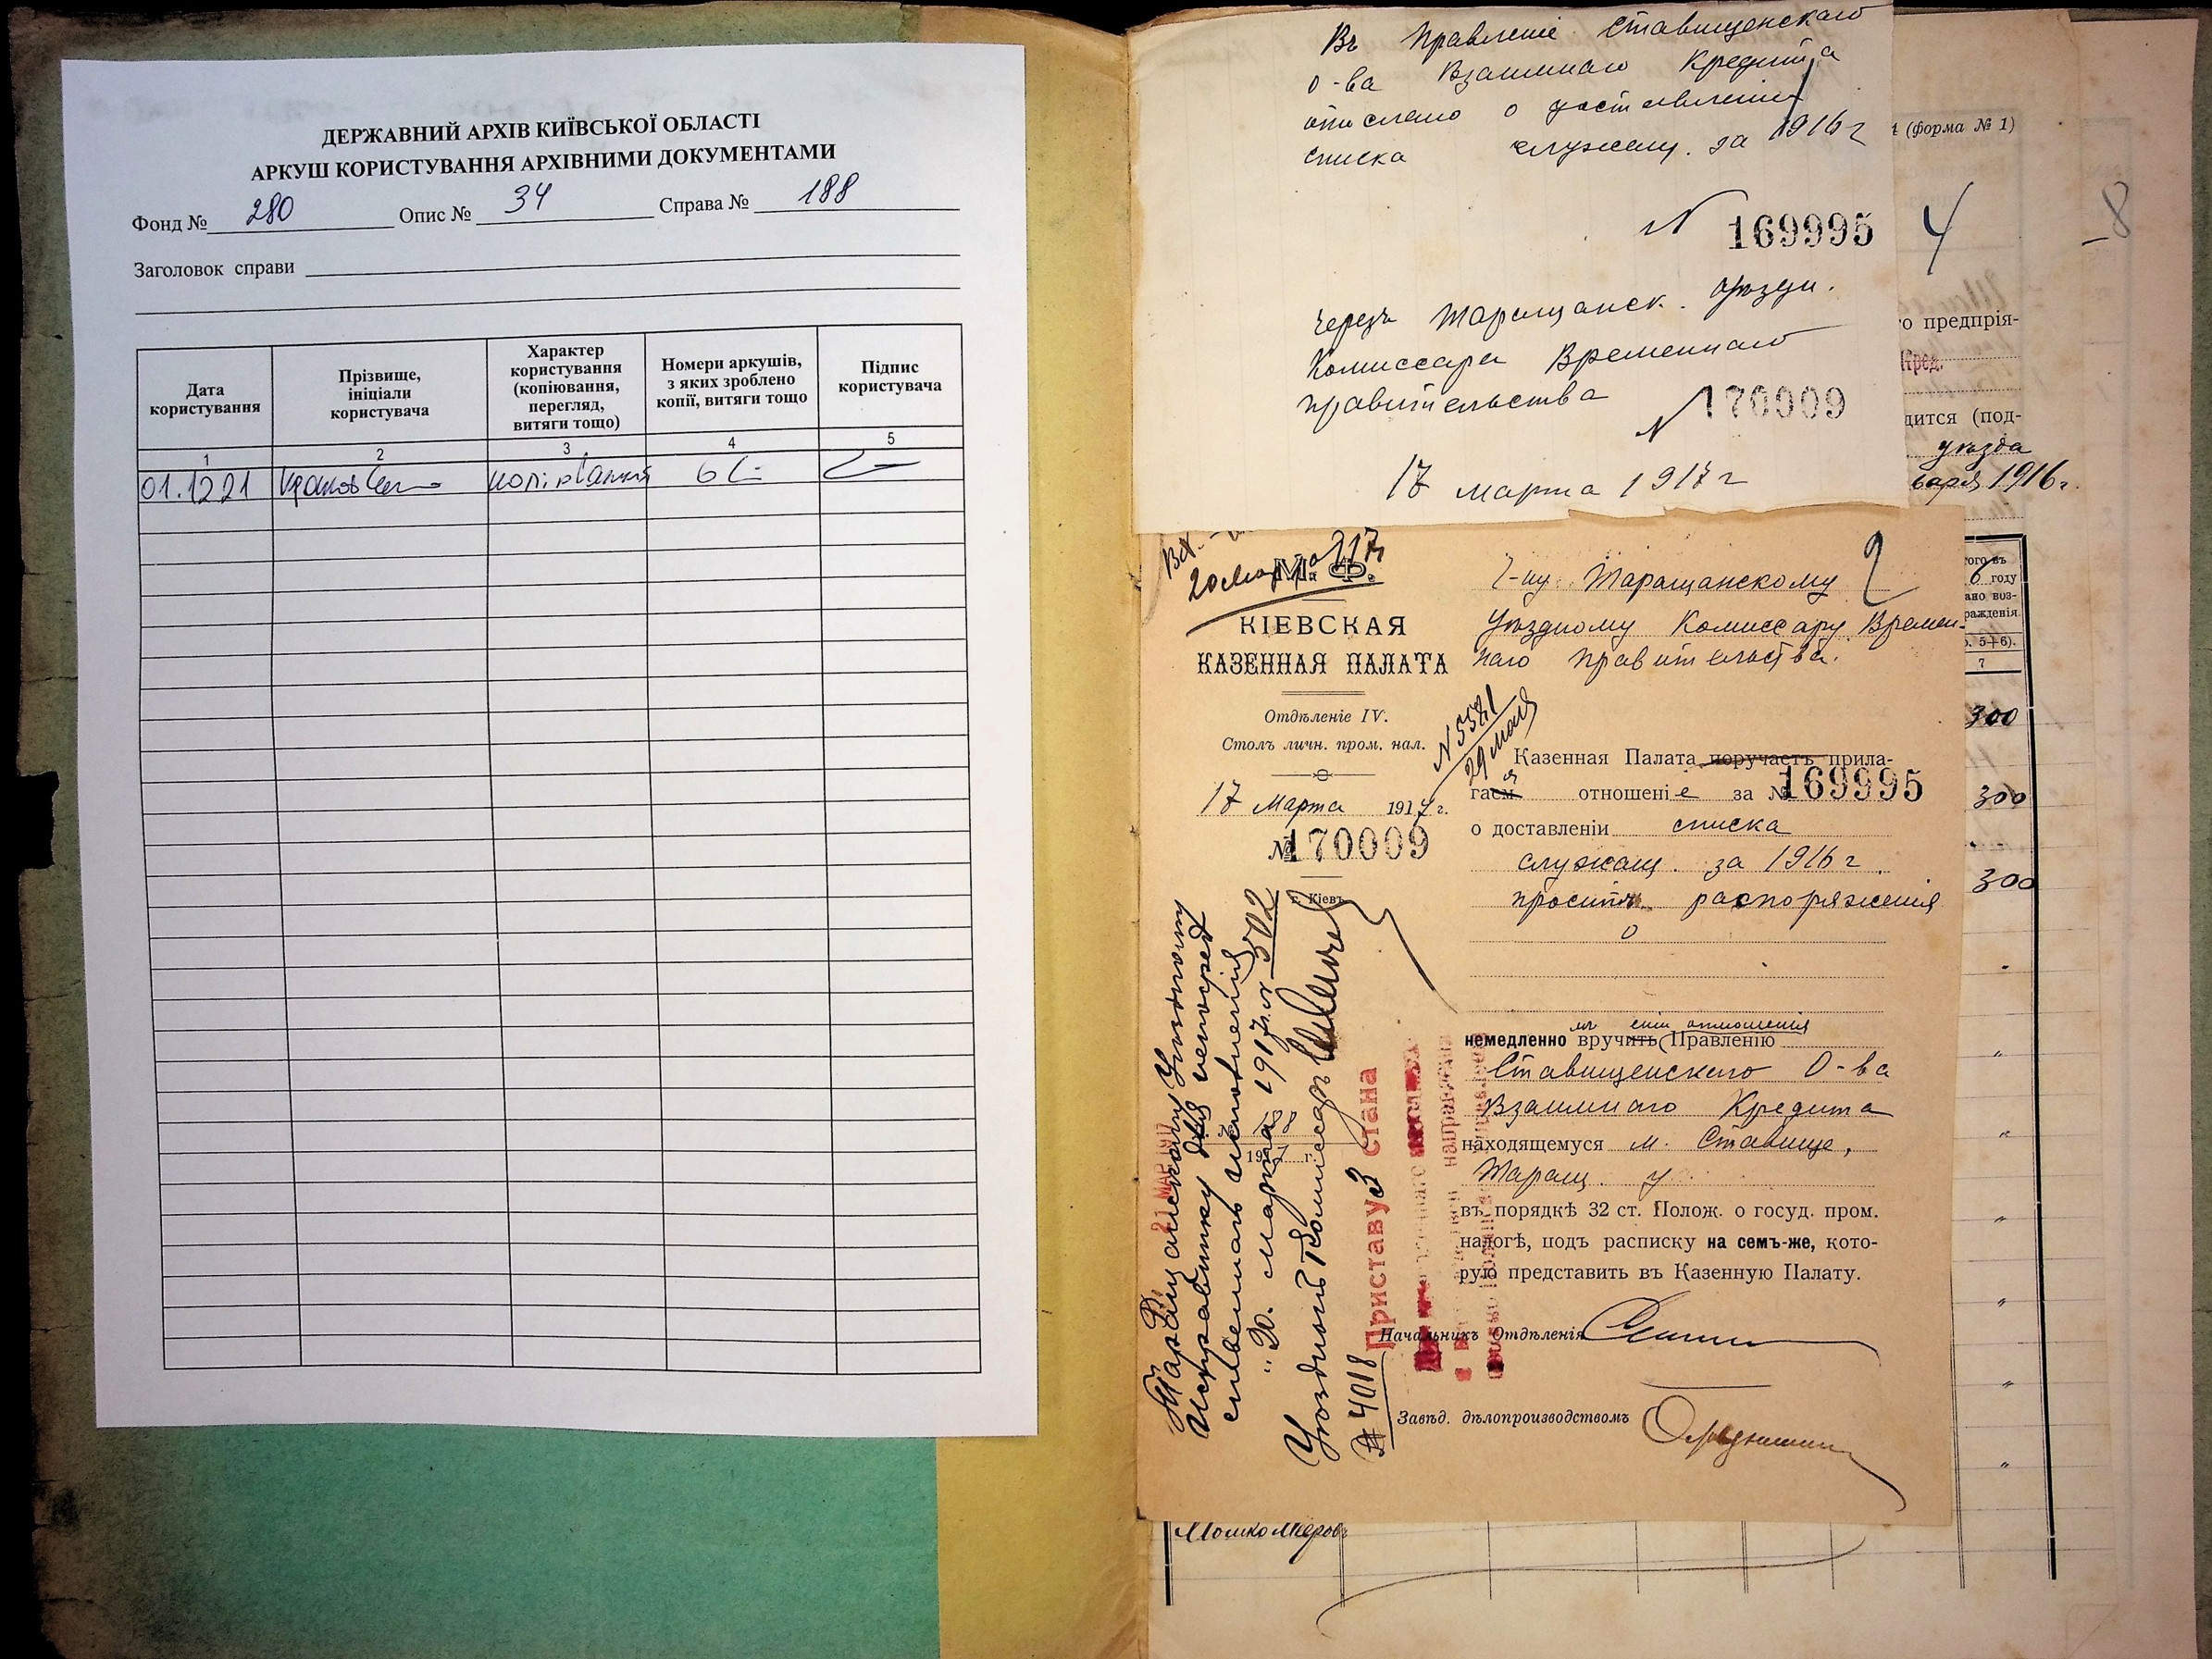 ДЕРЖАВНИЙ АРХІВ КИЇВСЬКОЇ ОБЛАСТІ
АРКУШ КОРИСТУВАННЯ АРХІВНИМИ ДОКУМЕНТАМИ
Фонд № 280 Опис № 34 Справа № 188
Заголовок справи
Дата користування
Прізвище, ініціали користувача
Характер користування (копіювання, перегляд, витяги тощо)
Номери аркушів, з яких зроблено копії, витяги тощо
Підпис користувача
1 2 3 4 5
01.12 21 копіювання
Въ Правленіе Ставищенскаго
о-ва Взаимнаго Кредита
отослано о доставленіи
списка служащ. за 1916 г
N 169995
черезъ Таращанск. уѣздн.
Комиссара Временнаго
правительства
N 170009
17 марта 1917 г
М. Ф.
КІЕВСКАЯ
КАЗЕННАЯ ПАЛАТА
Отдѣленіе IV.
Столъ личн. пром. нал.
17 Марта 1917 г.
№ 170009
г. Кіевъ
2
Г-ну Таращанскому
Уѣздному Комиссару Времен-
наго правительства.
N 5581
29 мая
Казенная Палата поручаетъ прила-
гая отношеніе за № 169995
о доставленіи списка
служащ. за 1916 г.
проситъ распоряженія
о
сего отношенія
немедленно вручить Правленію
Ставищенскаго О-ва
Взаимнаго Кредита
находящемуся м. Ставище,
Таращ. у.
въ порядкѣ 32 ст. Полож. о госуд. пром.
налогѣ, подъ расписку на семъ-же, кото-
рую представить въ Казенную Палату.
Начальникъ Отдѣленія
Завѣд. дѣлопроизводствомъ
Таращанскому Уѣздному
Исправнику для непосред
ственнаго исполненія
"20" марта 1917 г. N 502
Уѣздный Комиссаръ
№ 4018
Приставу 3 стана
21 МАР 1917
(форма № 1)
4
8
го предпрія-
Кред.
дится (под-
уѣзда
варя 1916 г.
году
5+6).
7
300
300
300
Мошко Меров.